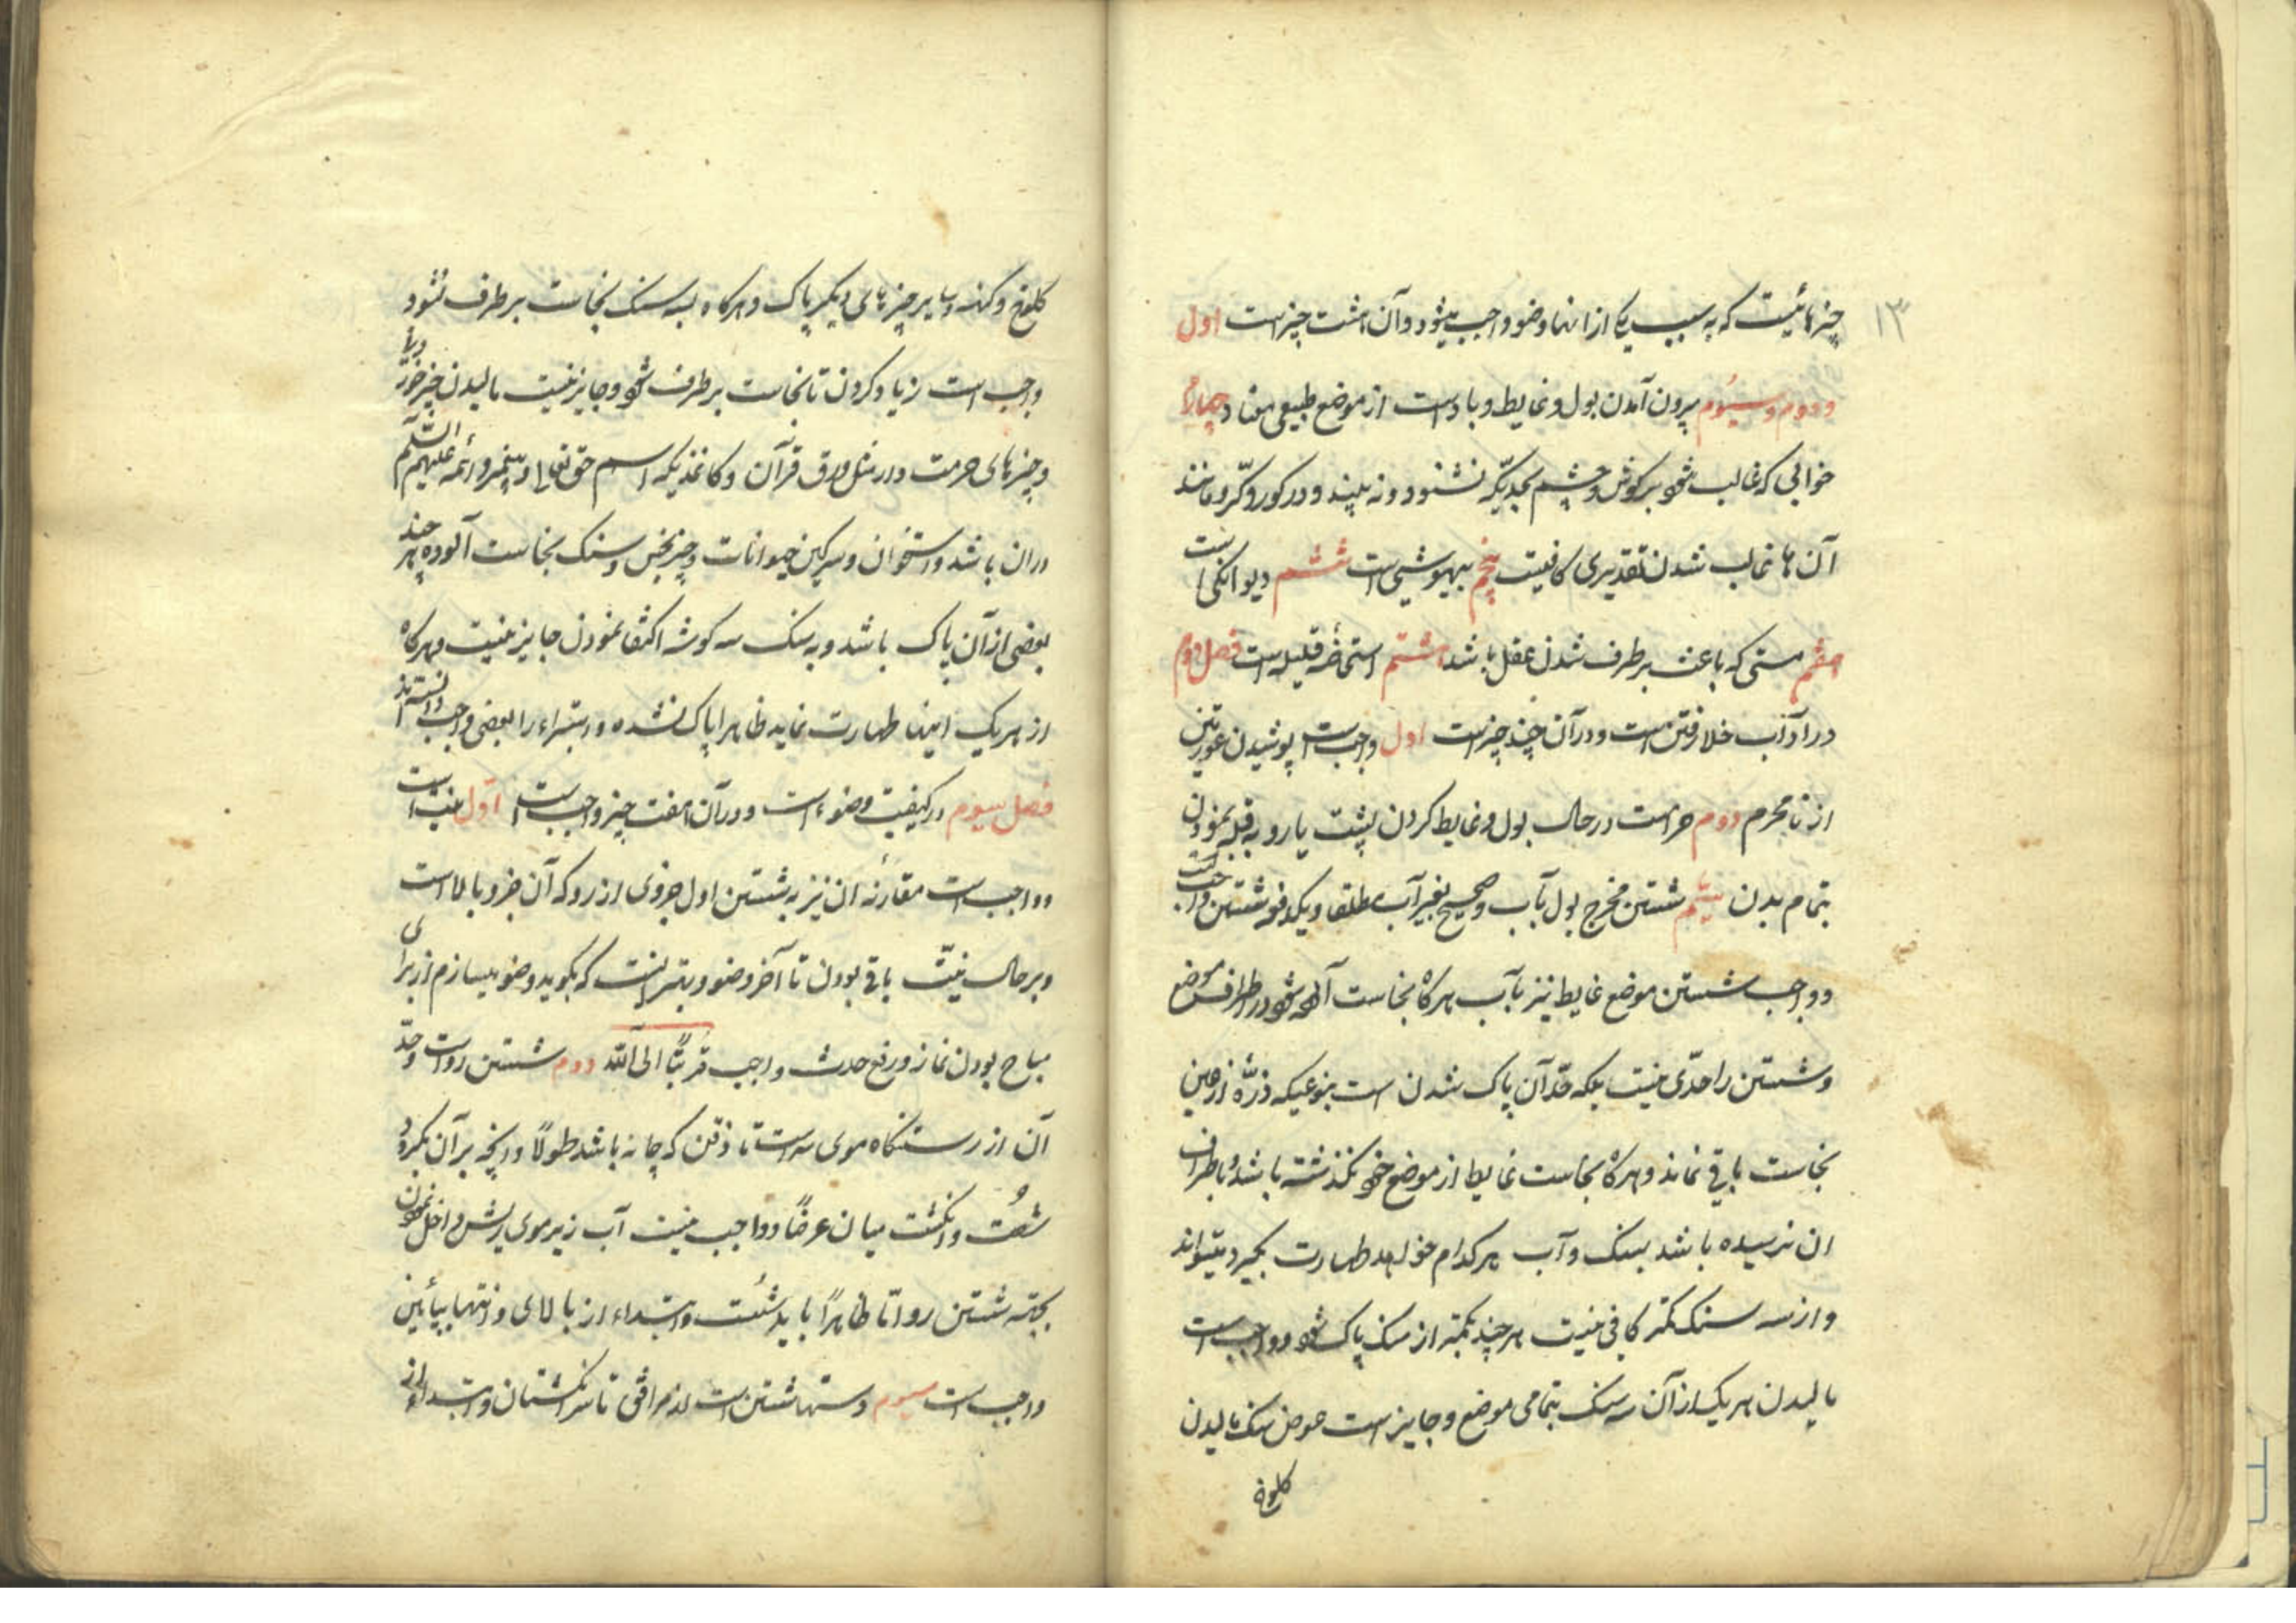 ۱۳
چیزهائیست که به سبب یکی از انها وضو واجب میشود و آن هشت چیز است اول
و دوم و سیوم بیرون آمدن بول و غایط و باد است از موضع طبیعی معتاد چهارم
خوابی که غالب شود بر کوش و چشم بحدیکه نشنود و نه بیند و در کور و کر و مانند
آن ها غالب شدن تقدیری کافیست پنجم بیهوشی است ششم دیوانکی است
هفتم مستی که باعث برطرف شدن عقل باشد هشتم استحاضه قلیله است فصل دوم
در آداب خلا رفتن است و در آن چند چیز است اول واجب است پوشیدن عورتین
از نامحرم دوم حرام است در حال بول و غایط کردن پشت یا رو به قبله نمودن
بتمام بدن سیم شستن مخرج بول بآب و صحیح بغیر آب مطلقا و یکدفعه شستن واجب است
و واجب شستن موضع غایط نیز بآب هرکاه نجاست آلوده شود در اطراف موضع
و شستن را حدّی نیست بلکه حدّ آن پاک شدن است بنوعیکه ذرّهٔ از عین
نجاست باقی نماند و هرکاه نجاست غایط از موضع خود نکذشته باشد و باطراف
ان نرسیده باشد بسنک و آب هر کدام خواهد طهارت بکیرد میتواند
و از سه سنک کمتر کافی نیست هر چند بکمتر از سنک پاک شود و واجب است
مالیدن هر یک از آن سه سنک بتمامی موضع و جایز است عوض سنک مالیدن
کلوخ
کلوخ و کهنه و سایر چیزهای دیکر پاک و هرکاه بسه سنک نجاست برطرف نشود
واجب است زیاد کردن تا نجاست برطرف شود و جایز نیست مالیدن چیز خوردنی
و چیزهای حرمت دار مثل ورق قرآن و کاغذیکه اسم حق تعالی و پیغمبر و ائمه علیهم السّلام
دران باشد و استخوان و سرکین حیوانات و چیز نجس و سنک نجاست آلوده هر چند
بعضی از آن پاک باشد و به سنک سه کوشه اکتفا نمودن جایز نیست و هرکاه
از هر یک اینها طهارت نماید ظاهرا پاک نشده و استبراء را بعضی واجب دانسته اند
فصل سیوم در کیفیت وضوء است و در آن هفت چیز واجب است اوّل نیت است
و واجب است مقارنهٔ ان نیز به شستن اول جزوی از رو که آن جزو بالا است
و بر حال نیّت باقی بودن تا آخر وضو و بهتر انست که بکوید وضو میسازم از برای
مباح بودن نماز و رفع حدث واجب قربةً الی اللّه دوم شستن رو است و حدّ
آن از رستنکاه موی سر است تا ذقن که چانه باشد طولاً و انچه بر آن بکیرد
شصت و انکشت میان عرضاً و واجب نیست آب زیر موی ریش داخل نمودن
بجهته شستن رو امّا ظاهراً باید شُست و ابتداء از بالای و انتها بپائین
واجب است سیوم دستها شستن است از مرافق تا سر انکشتان و ابتداء از